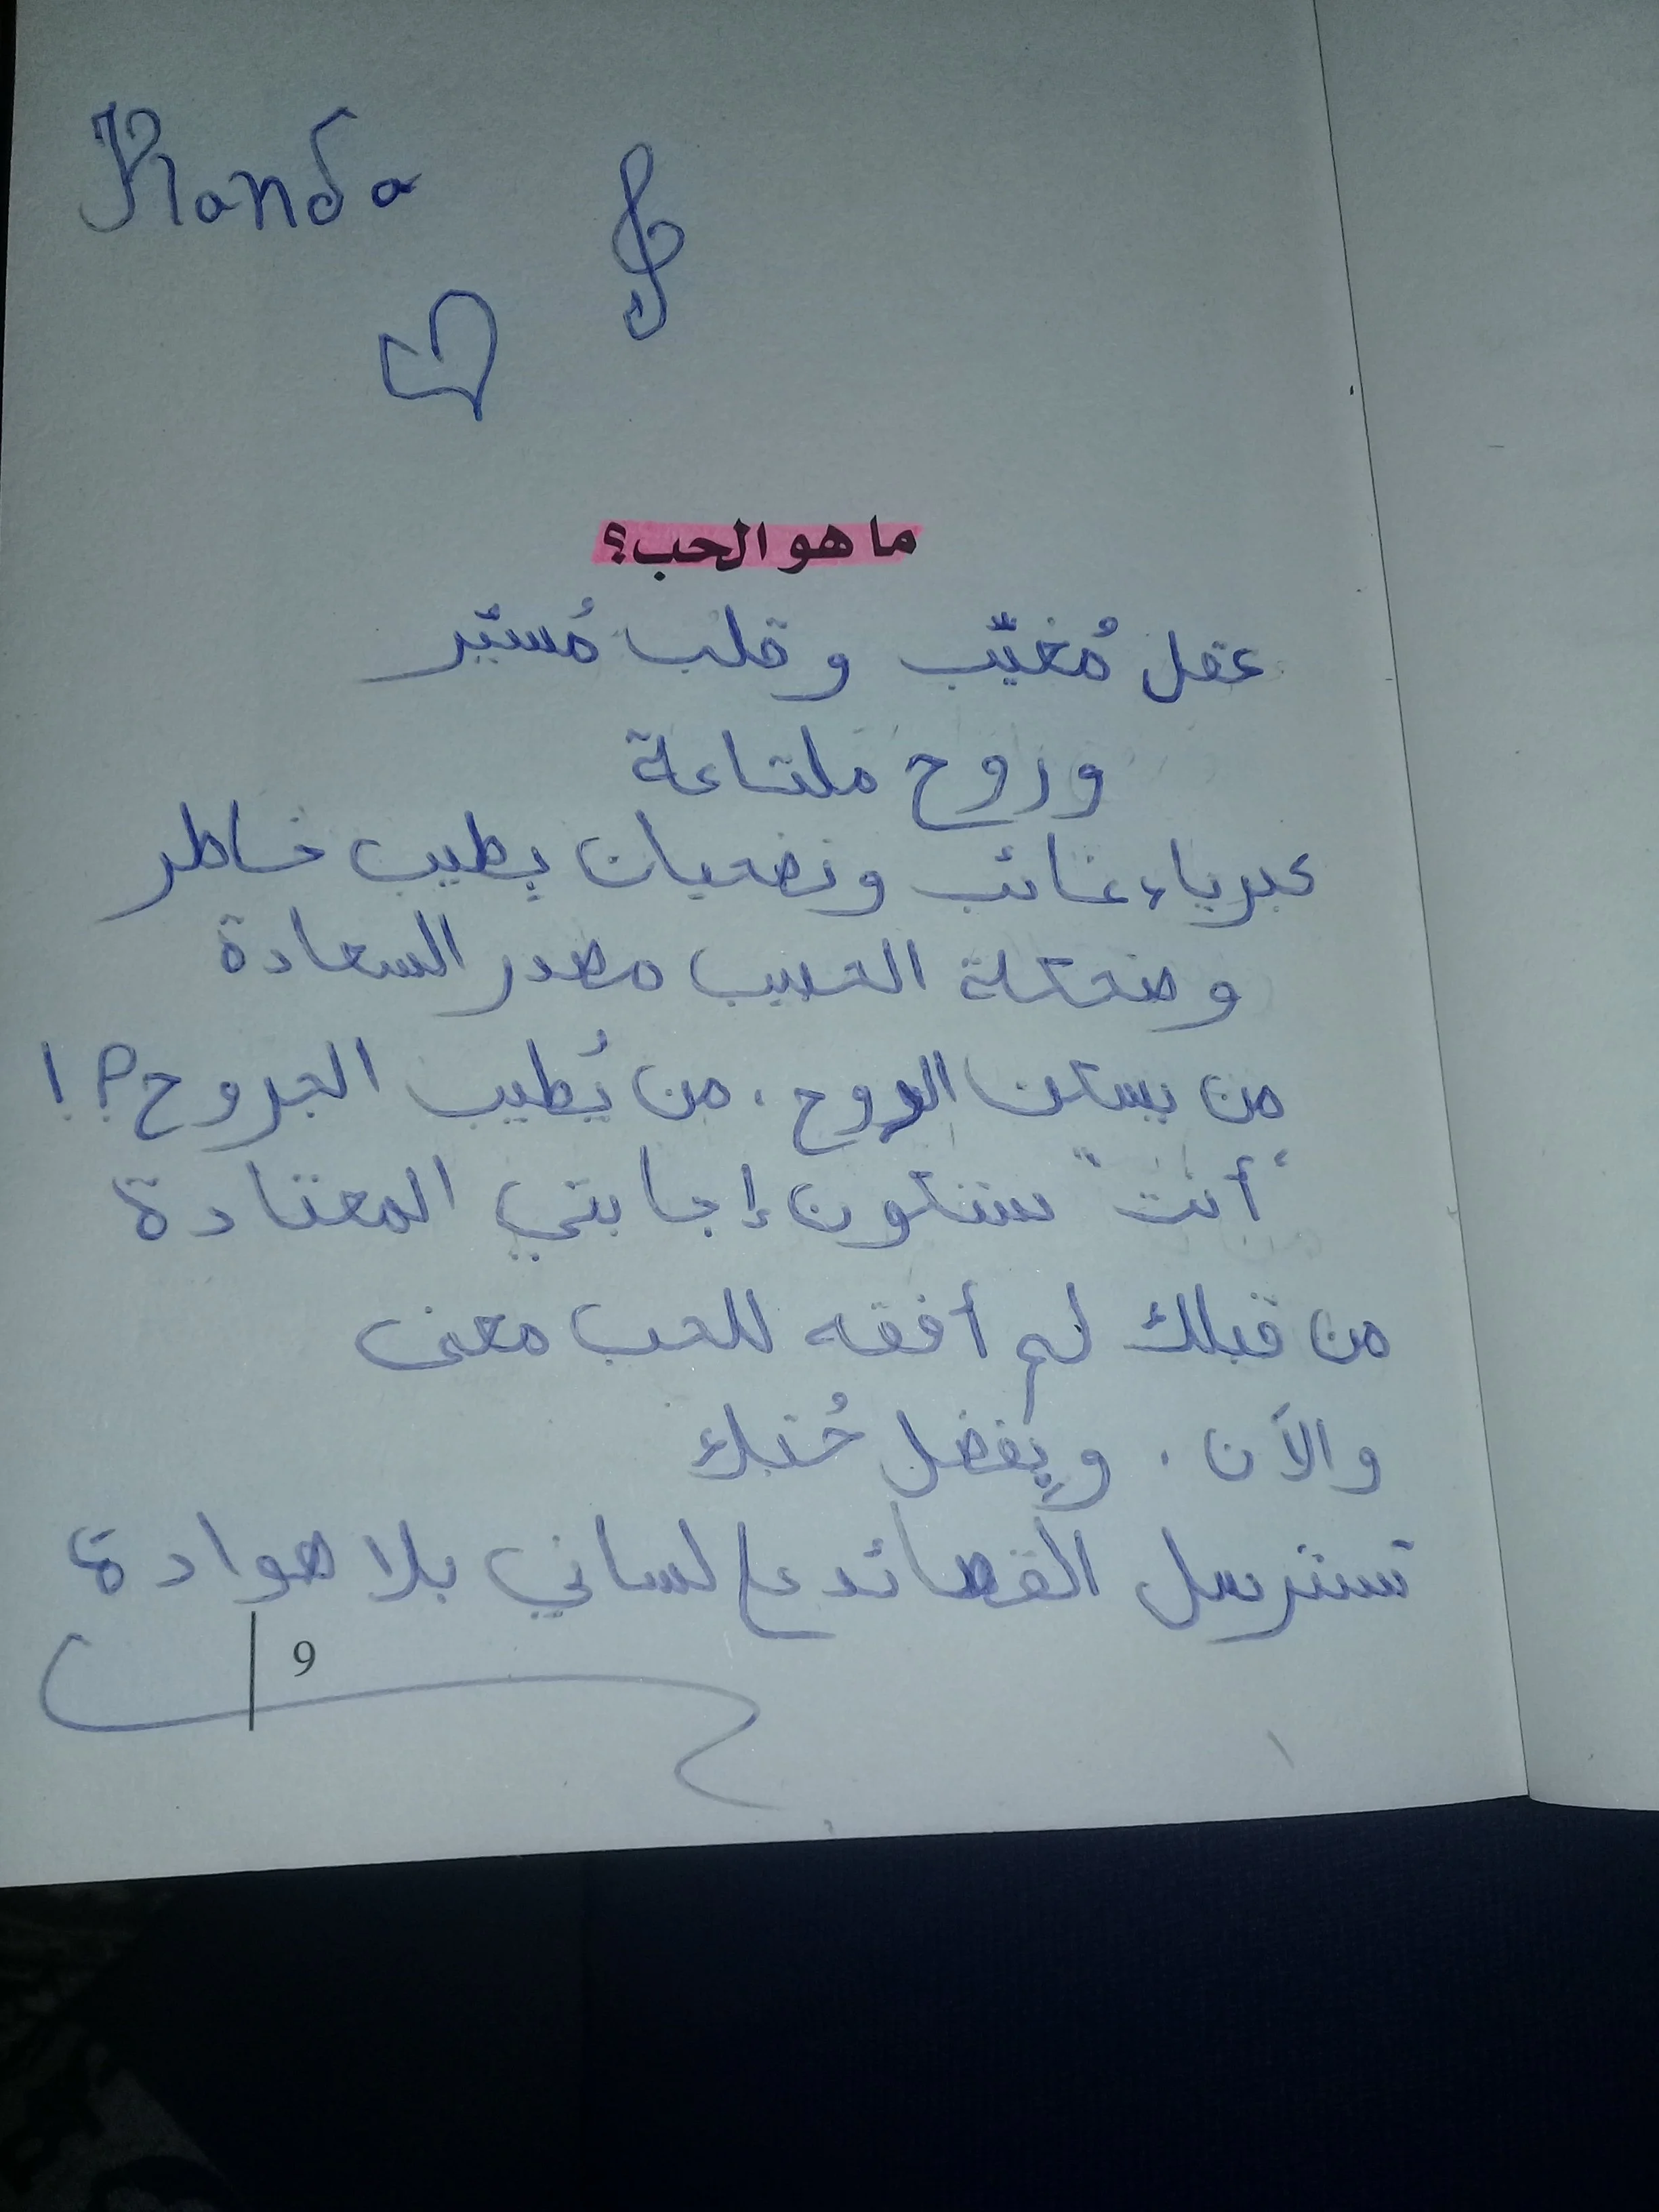 Randa
ما هو الحب؟
عقل مُغيّب وقلب مُسيّر
وروح ملتاعة
كبرياء غائب وتضحيات بطيب خاطر
وضحكة الحبيب مصدر السعادة
من يسكن الروح . من يُطيب الجروح؟!
"أنت" ستكون إجابتي المعتادة
من قبلك لم أفقه للحب معنى
والآن . وبفضل حُبك
تسترسل القصائد ع لساني بلا هوادة
9